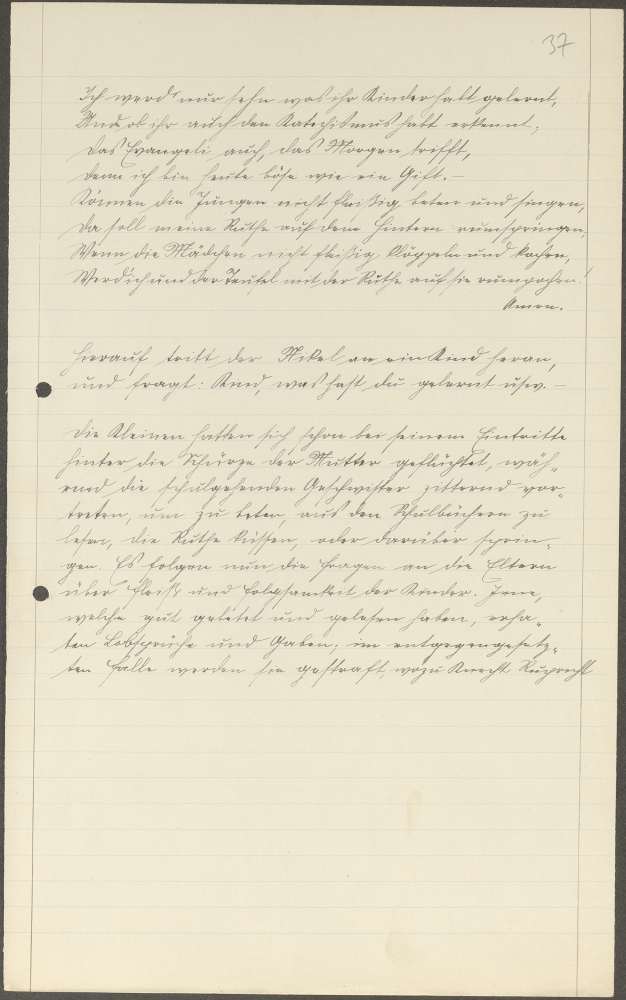 37
Ich werd' nur sehn was ihr Kinder habt gelernt,
Und ob ihr auch den Katechismus habt erkannt,
das Evangeli auch, das Morgen trifft,
denn ich bin heute böse wie ein Gift. –
Können die Jungen nicht fleißig beten und singen,
da soll meine Ruthe auf dem Hintern rumspringen,
Wenn die Mädchen nicht fleißig klöppeln und kochen,
Werd ich und der Teufel mit der Ruthe auf sie rumpochen!
Amen.
Hierauf tritt der Nikel an ein Kind heran,
und fragt: Kind, was hast du gelernt usw. –
Die Kleinen hatten sich schon bei seinem Eintritte
hinter die Schürze der Mutter geflüchtet, wäh-
rend die schulgehenden Geschwister zitternd vor-
treten, um zu beten, aus den Schulbüchern zu
lesen, die Ruthe küssen, oder darüber sprin-
gen. Es folgen nun die Fragen an die Eltern
über Fleiß und Folgsamkeit der Kinder. Jene,
welche gut gebetet und gelesen haben, erhal-
ten Lobsprüche und Gaben, im entgegengesetz-
ten Falle werden sie gestraft, wozu Knecht Ruprecht